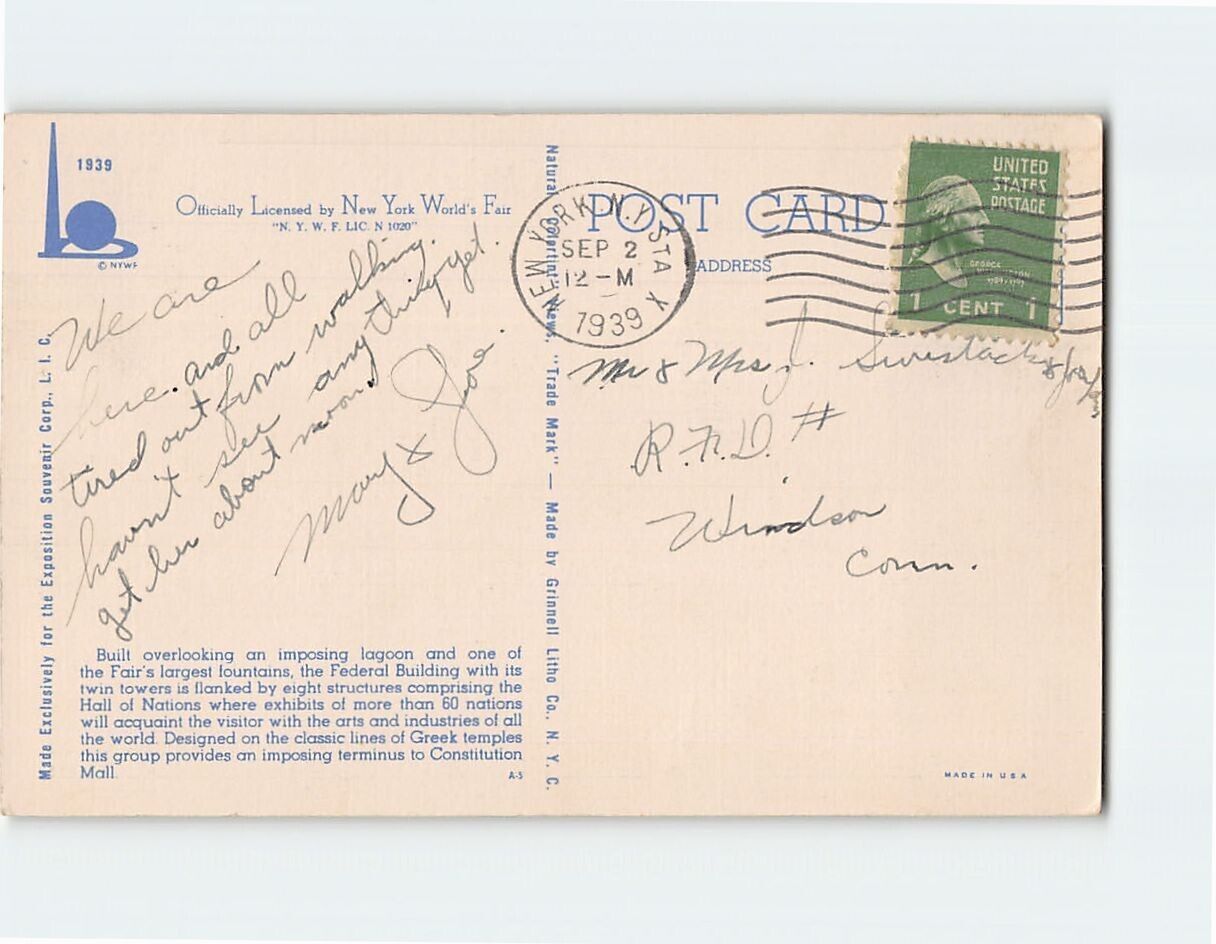 1939
© NYWF
Officially Licensed by New York World's Fair
"N. Y. W. F. LIC. N 1020"
We are
here. and all
tired out from walking.
havn't see any thing yet.
get her about noon.
Mary & Joe
Built overlooking an imposing lagoon and one of
the Fair's largest fountains, the Federal Building with its
twin towers is flanked by eight structures comprising the
Hall of Nations where exhibits of more than 60 nations
will acquaint the visitor with the arts and industries of all
the world. Designed on the classic lines of Greek temples
this group provides an imposing terminus to Constitution
Mall.
A-5
Made Exclusively for the Exposition Souvenir Corp., L. I. C.
Natural Colortint" Views, "Trade Mark" — Made by Grinnell Litho Co., N. Y. C.
POST CARD
ADDRESS
NEW YORK, N.Y. STA X
SEP 2
12 - M
1939
UNITED
STATES
POSTAGE
GEORGE
WASHINGTON
1 CENT 1
Mr & Mrs J.
R.F.D. #
Windsor
Conn.
MADE IN USA